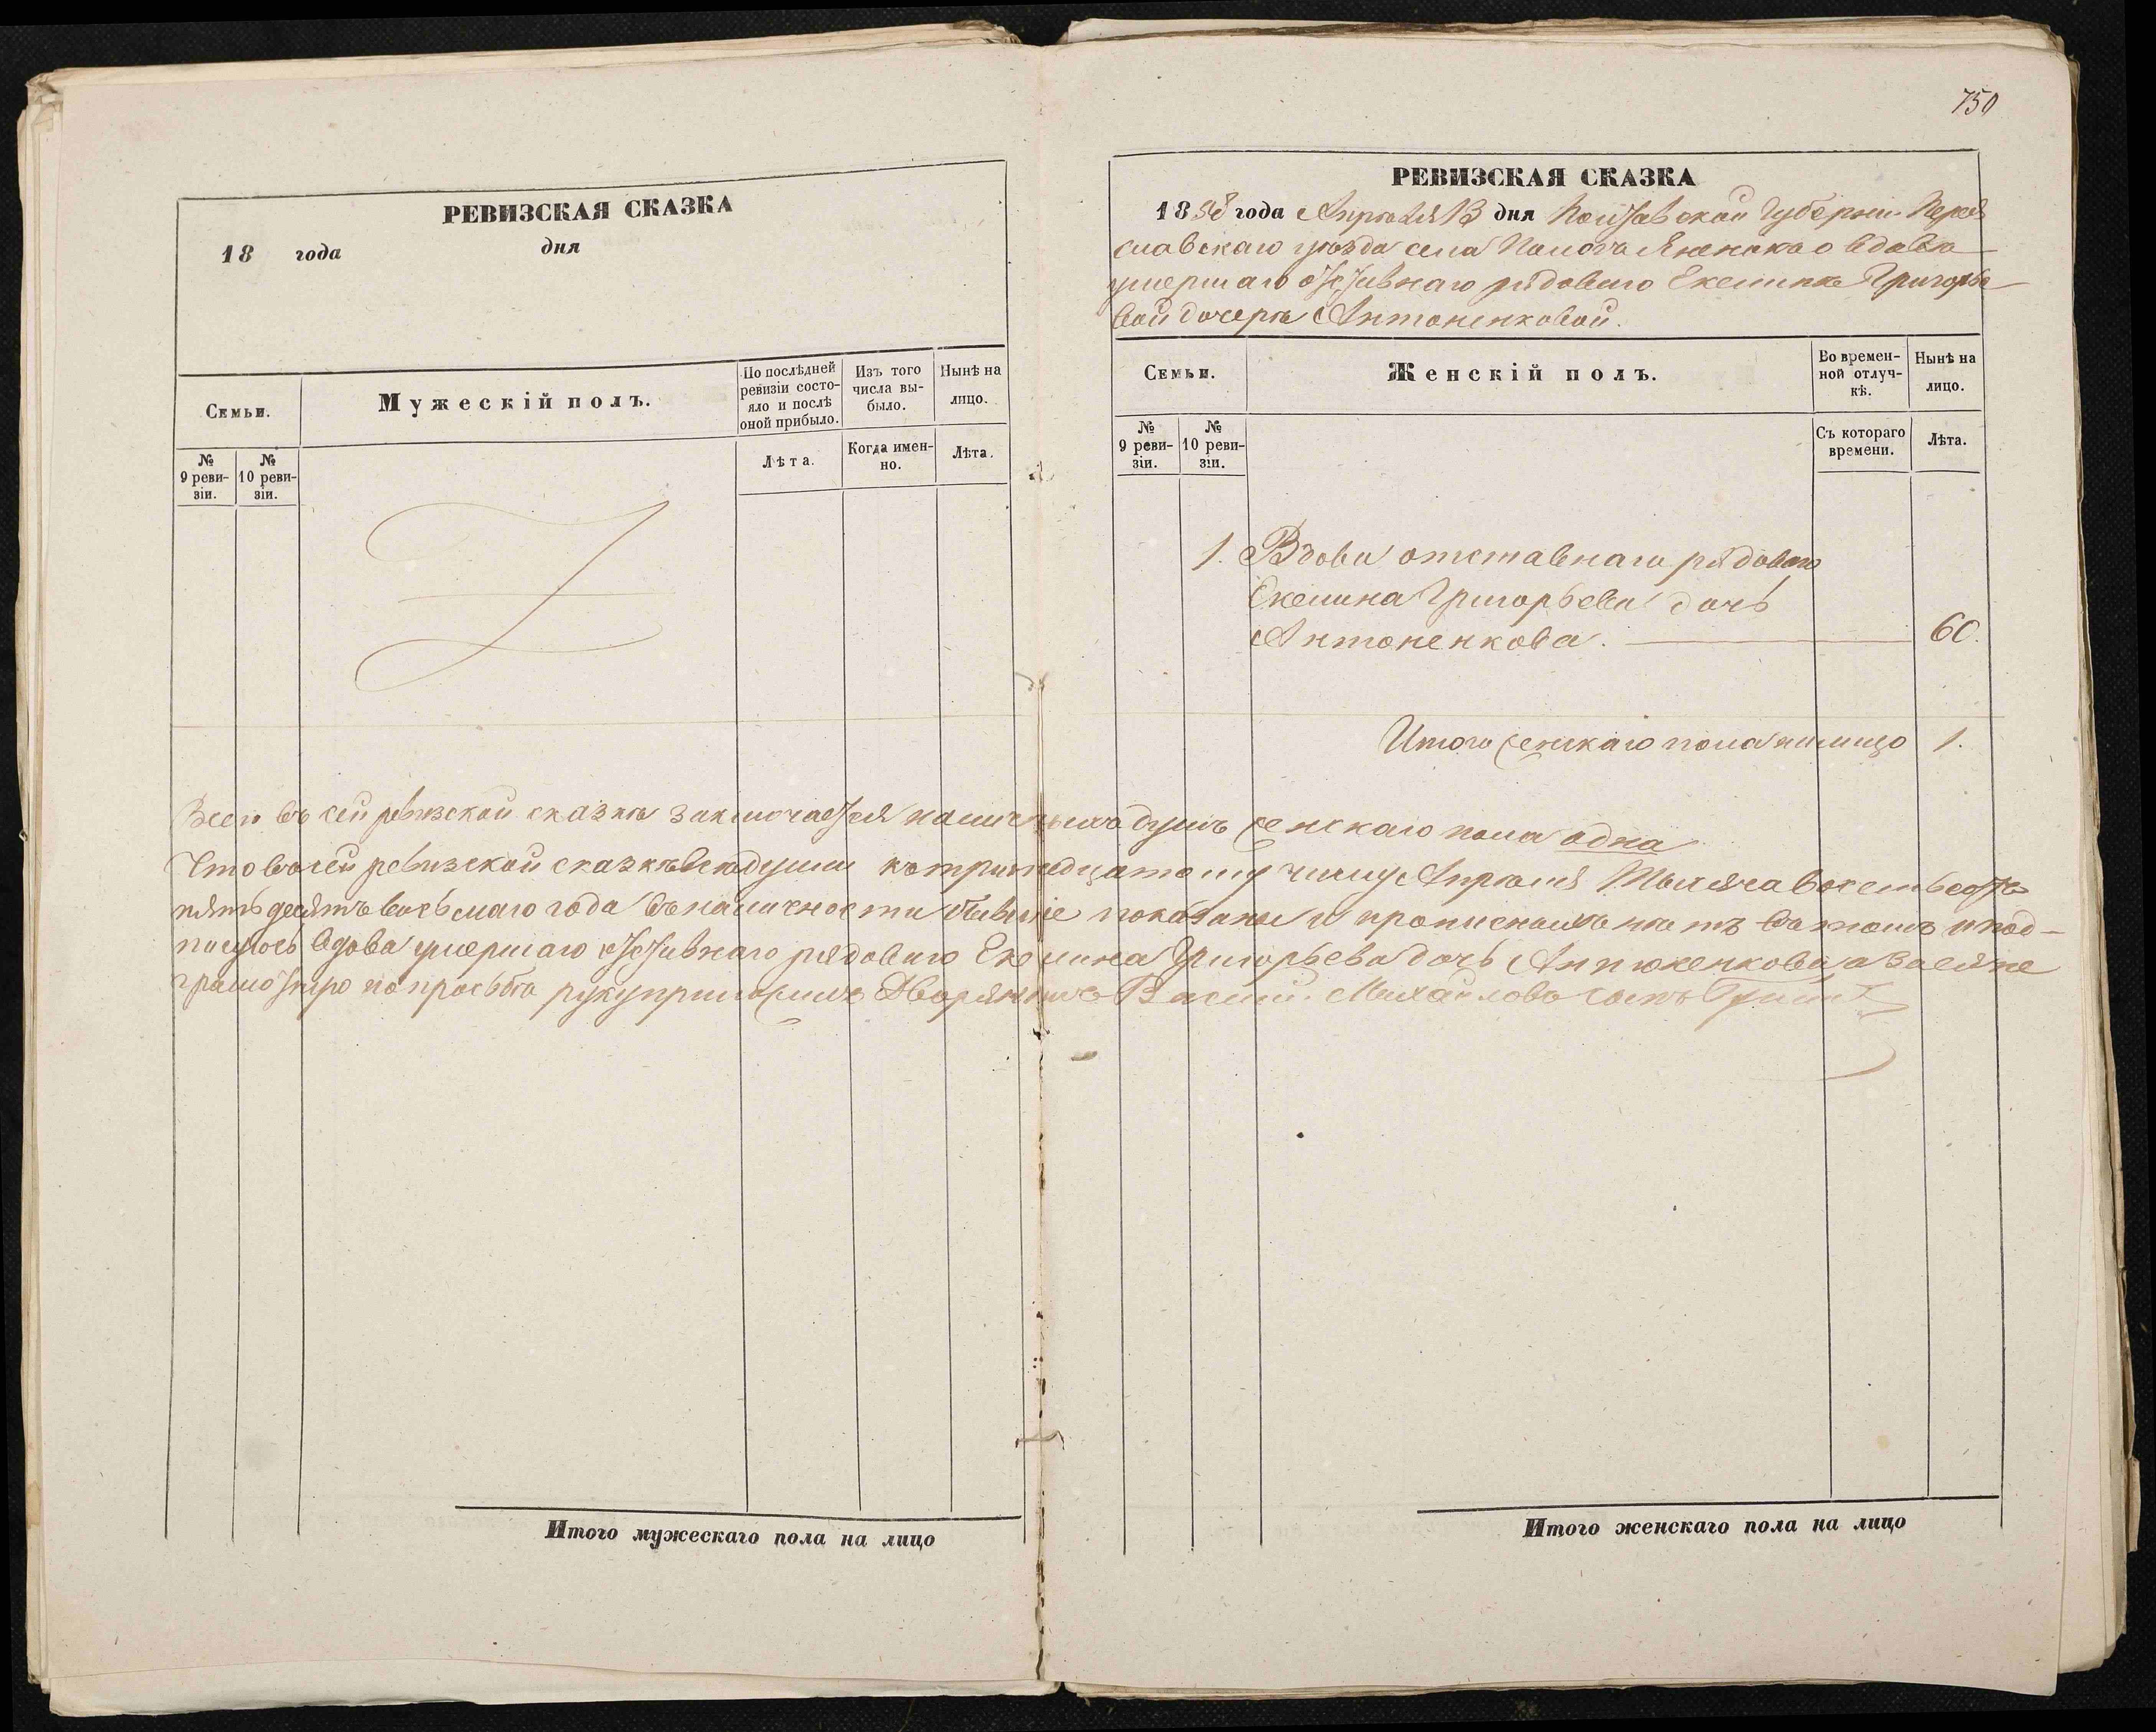 РЕВИЗСКАЯ СКАЗКА
18 года дня
Семьи.
Мужескій полъ.
По послѣдней ревизіи состояло и послѣ оной прибыло.
Изъ того числа выбыло.
Нынѣ на лицо.
№ 9 ревизіи.
№ 10 ревизіи.
Лѣта.
Когда именно.
Лѣта.
Итого мужескаго пола на лицо
750
РЕВИЗСКАЯ СКАЗКА
1858 года Апрѣля 13 дня Полтавской Губерніи Перея
славскаго уѣзда села вдовы
умершаго отставнаго рядоваго Григорье
вой дочери Антоненковой.
Семьи.
Женскій полъ.
Во временной отлучкѣ.
Нынѣ на лицо.
№ 9 ревизіи.
№ 10 ревизіи.
Съ котораго времени.
Лѣта.
1. Вдова отставнаго рядоваго
Григорьева дочь
Антоненкова. 60.
Итого женскаго пола налицо 1.
Всего въ сей ревизской сказкѣ заключается наличныхъ душъ женскаго пола одна
Что въ сей ревизской сказкѣ всѣ души къ тринадцатому числу Апрѣля Тысяча восемьсотъ
пятьдесятъ восьмаго года въ наличности бывшіе показаны и прописныхъ нѣтъ въ томъ и под-
писуюсь вдова умершаго отставнаго рядоваго Григорьева дочь Антоненкова, а за ея не
грамотную по прозьбѣ руку приложилъ Дворянинъ Васил. Михайловъ сынъ
Итого женскаго пола на лицо